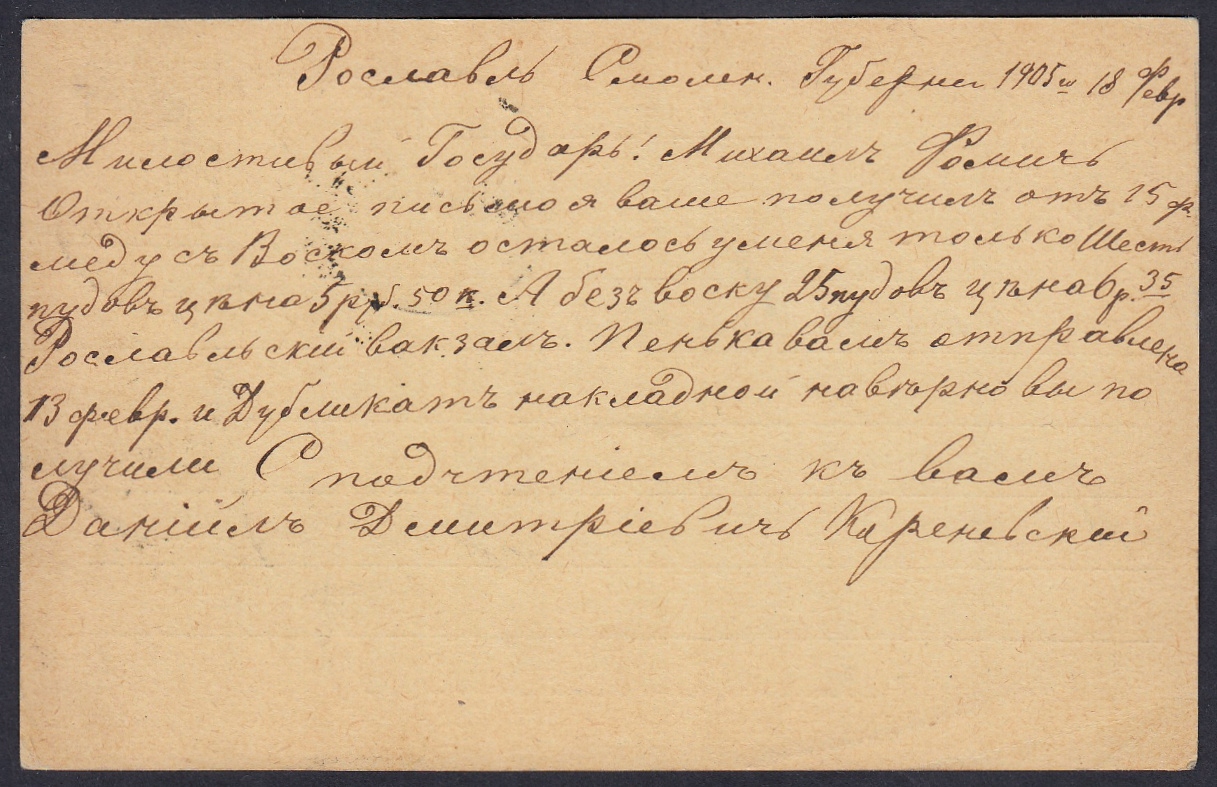 Рославль Смолен. Губерни 1905 го 18 Февр
Милостивый Государь! Михаилъ Фомичъ
Открытое письмо я ваше получилъ отъ 15 ф.
меду съ Воскомъ осталось у меня только Шесть
пудовъ цѣна 5 руб. 50 к. А безъ воску 25 пудовъ цѣна 6 р. 35
Рославльский вакзалъ. Пенька вамъ отправлена
13 февр. и Дубликатъ накладной навѣрно вы по
лучили С подчтеніемъ къ вамъ
Даніилъ Дмитріевичъ Кареневский